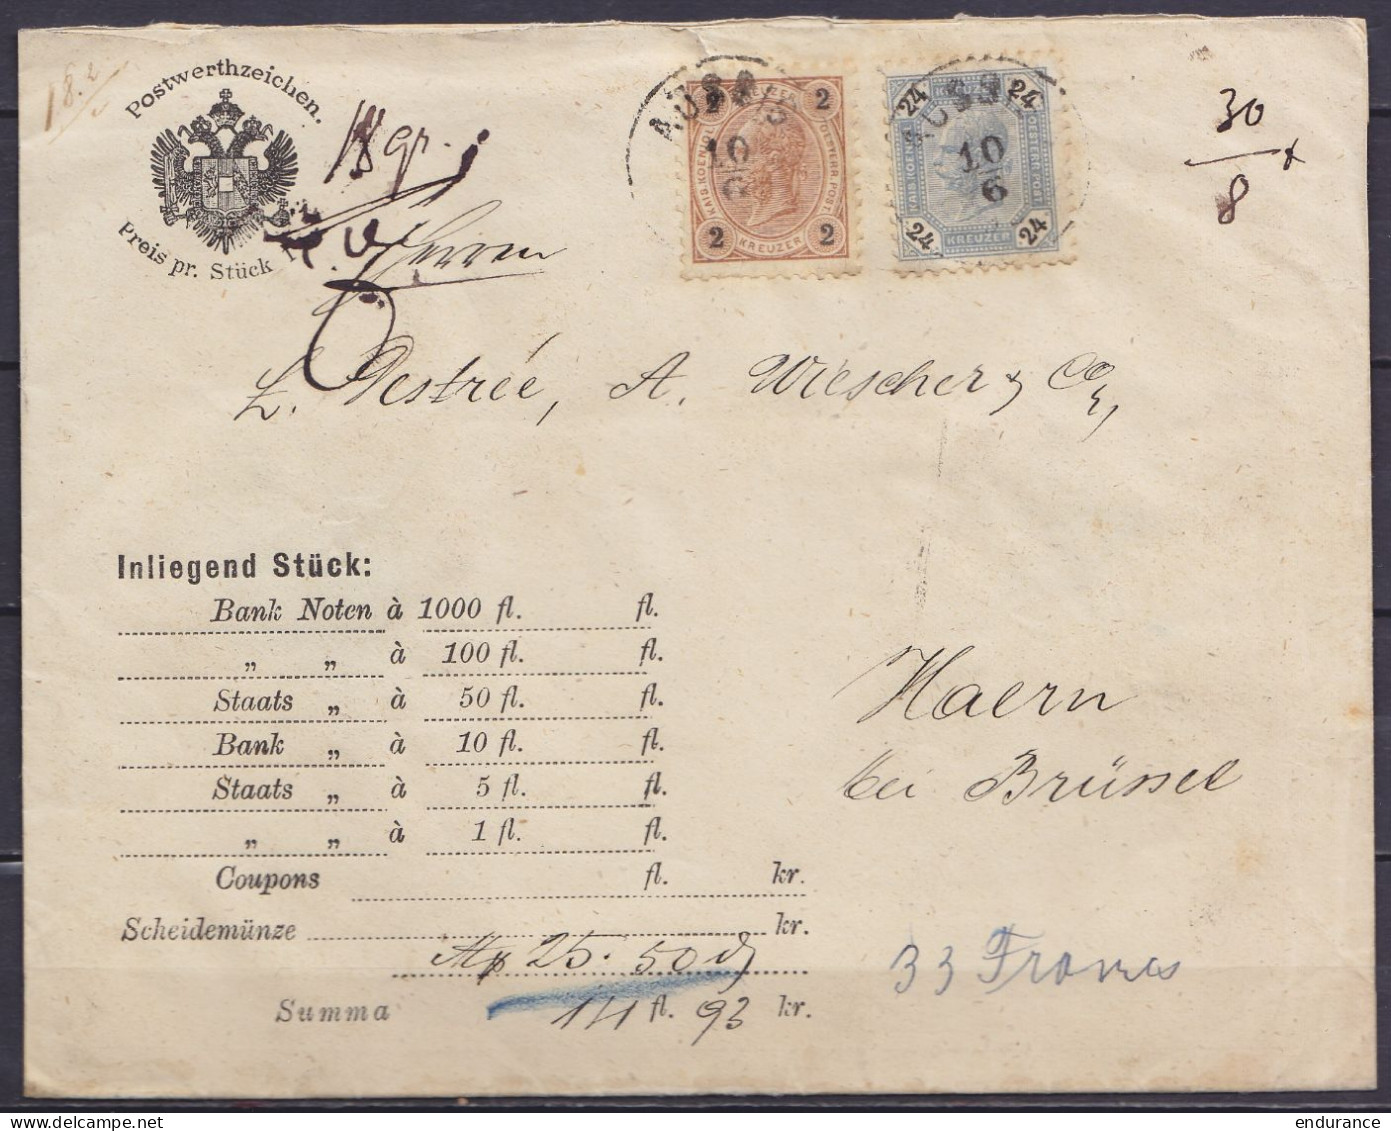 18.2
Postwerthzeichen.
Preis pr. Stück 1
18 gr.
AUSS
10
2 2
2 2
KREUZER
AUSS
10
6
24 24
24 24
KREUZER
30
8
Herren
L. Destrée, A. Wiescher & Co,
Inliegend Stück:
Bank Noten à 1000 fl. fl.
„ „ à 100 fl. fl.
Staats „ à 50 fl. fl.
Bank „ à 10 fl. fl.
Staats „ à 5 fl. fl.
„ „ à 1 fl. fl.
Coupons fl. kr.
Scheidemünze kr.
25.50
Summa 14 fl. 93 kr.
Haern
bei Brüssel
33 Francs
endurance